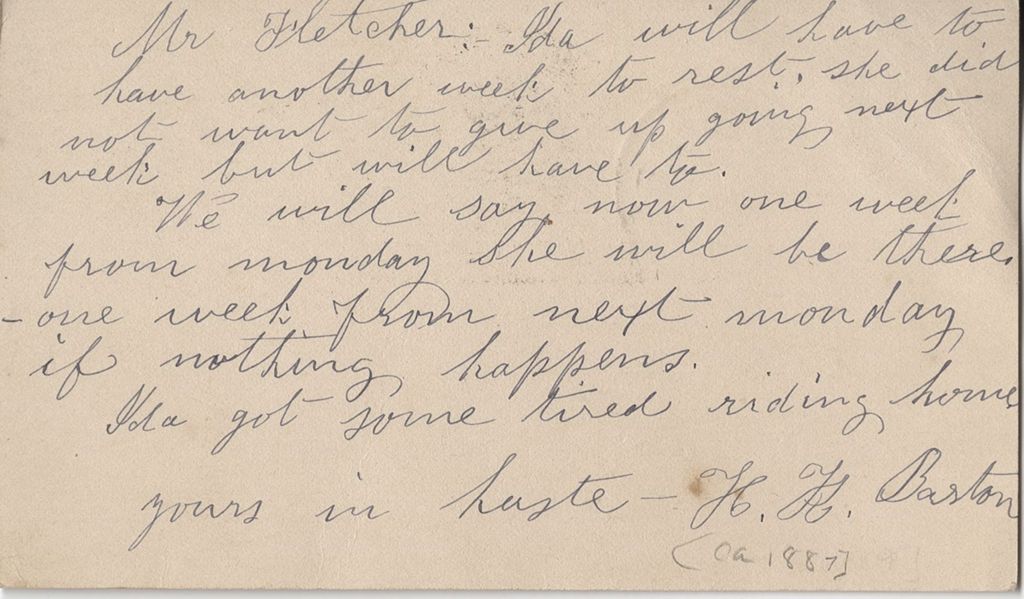 Mr Fletcher:- Ida will have to
have another week to rest, she did
not want to give up going next
week but will have to.
We will say now one week
from monday she will be there.
-one week from next monday
if nothing happens.
Ida got some tired riding home
yours in haste - H. H. Barton
(ca 1887]